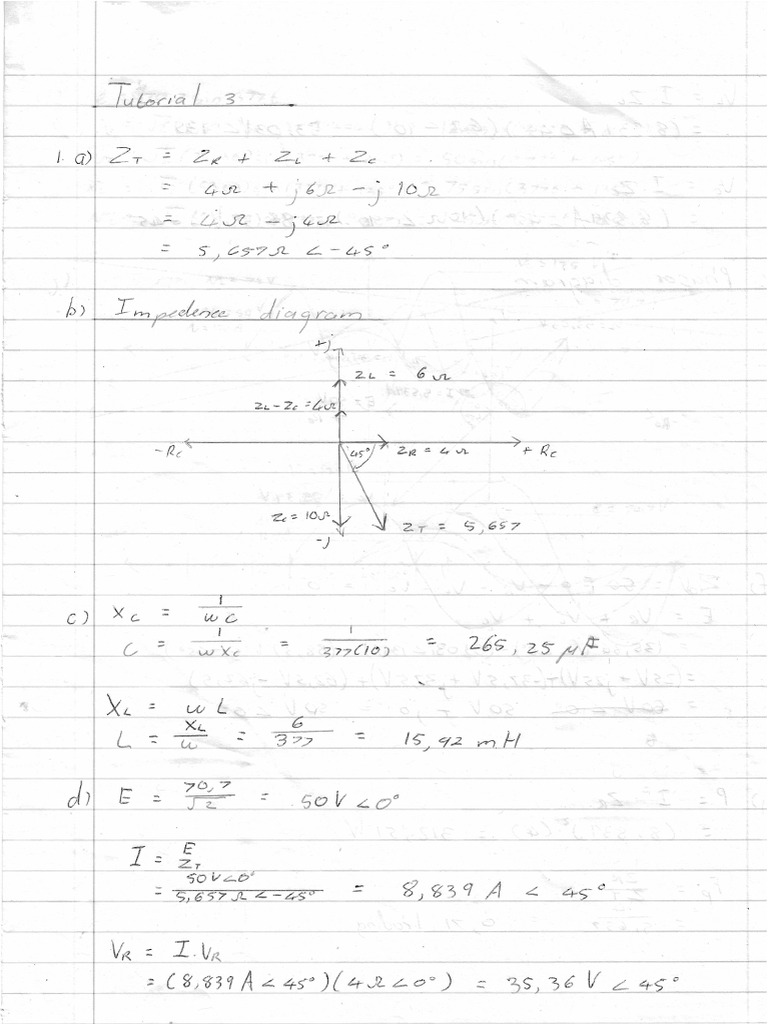 Tutorial 3
1. a) ZT = ZR + ZL + ZC
= 4Ω + j6Ω - j 10Ω
= 4Ω - j4Ω
= 5,657Ω < -45°
b) Impedence diagram
+j
ZL = 6Ω
ZL-ZC = 4Ω
-Re
45°
ZR = 4Ω
+Re
ZC = 10Ω
ZT = 5,657
-j
c) XC = 1/wC
C = 1/wXC = 1/377(10) = 265,25 μF
XL = wL
L = XL/w = 6/377 = 15,92 mH
d) E = 70,7/√2 = 50V <0°
I = E/ZT
= 50V<0°/5,657Ω<-45° = 8,839 A < 45°
VR = I.VR
= (8,839A < 45°)(4Ω<0°) = 35,36 V < 45°